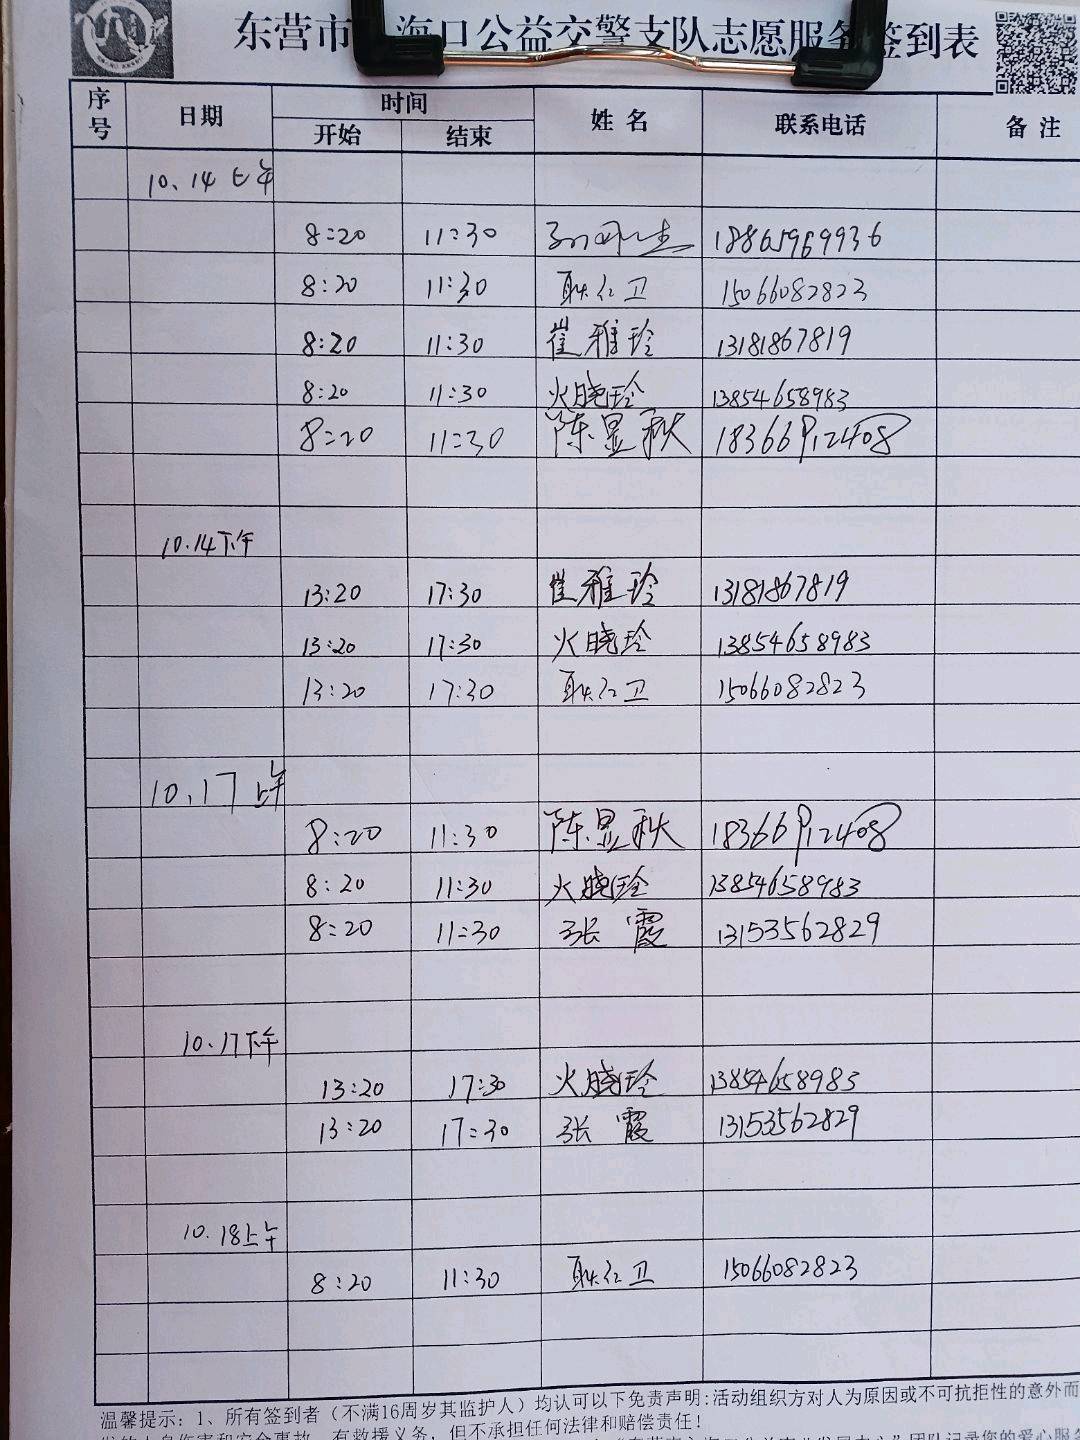 东营市 海口公益交警支队志愿服务签到表
序号 日期 时间 姓名 联系电话 备注
开始 结束
10.14上午
8:20 11:30 18865969936
8:20 11:30 耿仁卫 15066082823
8:20 11:30 崔雅玲 13181867819
8:20 11:30 火晓玲 13854658983
8:20 11:30 陈显秋 18366912408
10.14下午
13:20 17:30 崔雅玲 13181867819
13:20 17:30 火晓玲 13854658983
13:20 17:30 耿仁卫 15066082823
10.17上午
8:20 11:30 陈显秋 18366912408
8:20 11:30 火晓玲 13854658983
8:20 11:30 张霞 13153562829
10.17下午
13:20 17:30 火晓玲 13854658983
13:20 17:30 张霞 13153562829
10.18上午
8:20 11:30 耿仁卫 15066082823
温馨提示：1、所有签到者（不满16周岁其监护人）均认可以下免责声明:活动组织方对人为原因或不可抗拒性的意外而
发的人身伤害和安全事故，有救援义务，但不承担任何法律和赔偿责任!